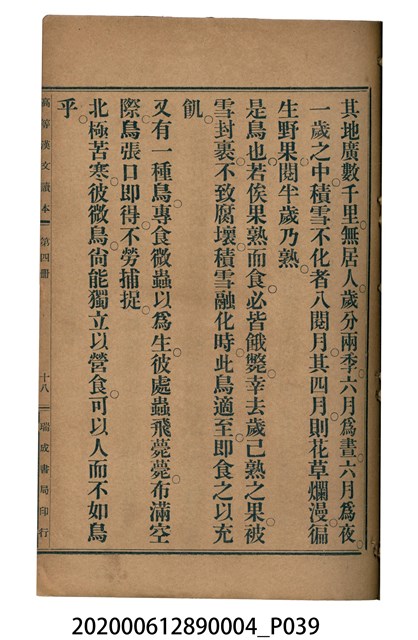 其地廣數千里。無居人。歲分兩季。六月爲晝。六月爲夜。
一歲之中。積雪不化者八閱月。其四月則花草爛漫。徧
生野果。閱半歲乃熟。
是鳥也。若俟果熟而食。必皆餓斃。幸去歲已熟之果。被
雪封裹。不致腐壞。積雪融化時。此鳥適至。即食之以充
飢。
又有一種鳥。專食微蟲以爲生。彼處蟲飛薨薨。布滿空
際。鳥張口即得。不勞捕捉。
北極苦寒。彼微鳥尙能獨立以營食。可以人而不如鳥
乎。
高等漢文讀本 第四册 十八 瑞成書局印行
202000612890004_P039